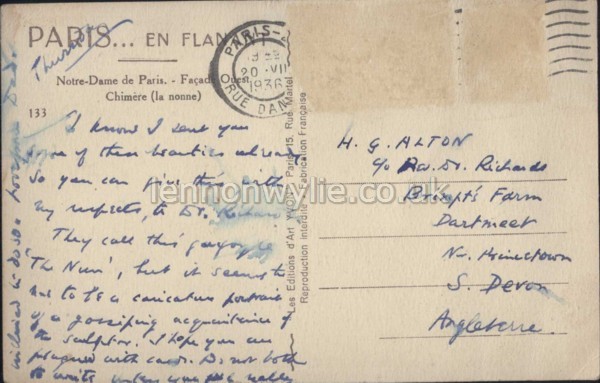 PARIS... EN FLAN
Thurs
Notre-Dame de Paris. - Façade Ouest
Chimère (la nonne)
133
PARIS-
20 -VII
1936
RUE DAN
I know I sent you
some of these beauties already
So you can give this, with
my respects, to Dr. Richards
They call this gargoyle
'The Nun', but it seems to
me to be a caricature portrait
of a gossiping acquaintance of
the sculptor. I hope you are
plagued with cards. Do not both
to write unless you are really
inclined to do so.
Les Editions d'Art YVON, Paris, 15, Rue Martel
Reproduction interdite Fabrication Française
H. G. ALTON
c/o Dr. Richards
Brimpt's Farm
Dartmeet
Nr. Princetown
S. Devon
Angleterre.
lennonwylie.co.uk